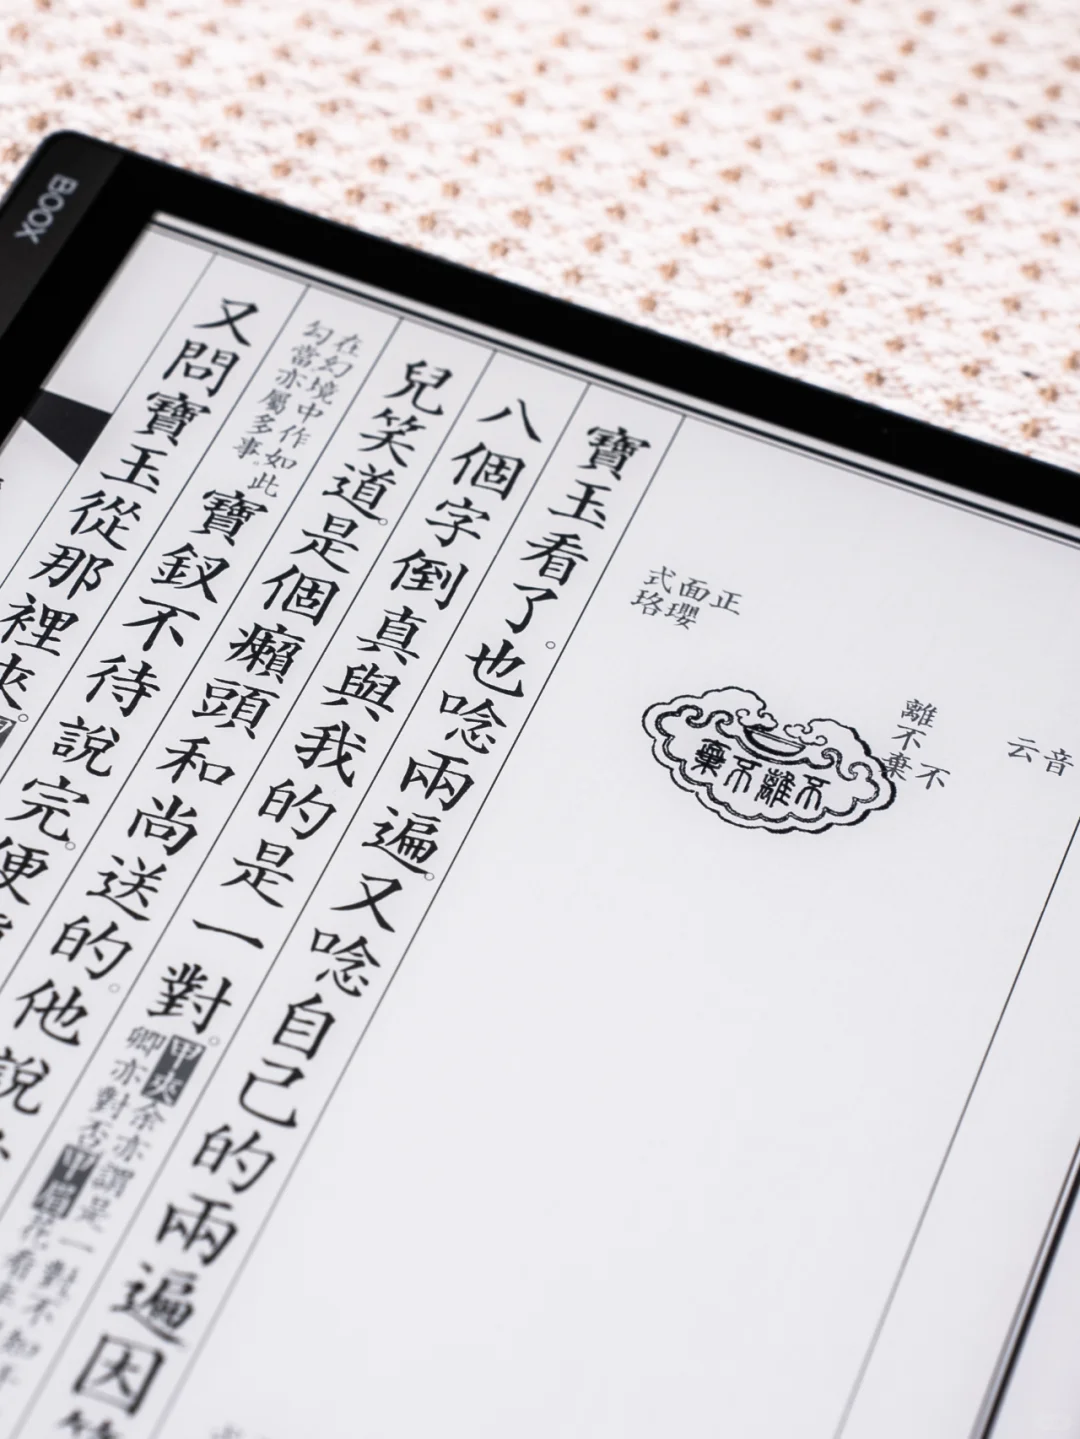 音云
不離不棄
正面式
瓔珞
不離不棄
寶玉看了。也唸兩遍。又唸自己的兩遍因
八個字倒真與我的是一對。甲夾余亦謂是一對不知
卿亦對否甲眉花看
兒笑道。是個癩頭和尚送的。他說
在幻境中作如此
勾當亦屬多事。
寶釵不待說完。便
又問寶玉從那裡來。
BOOX